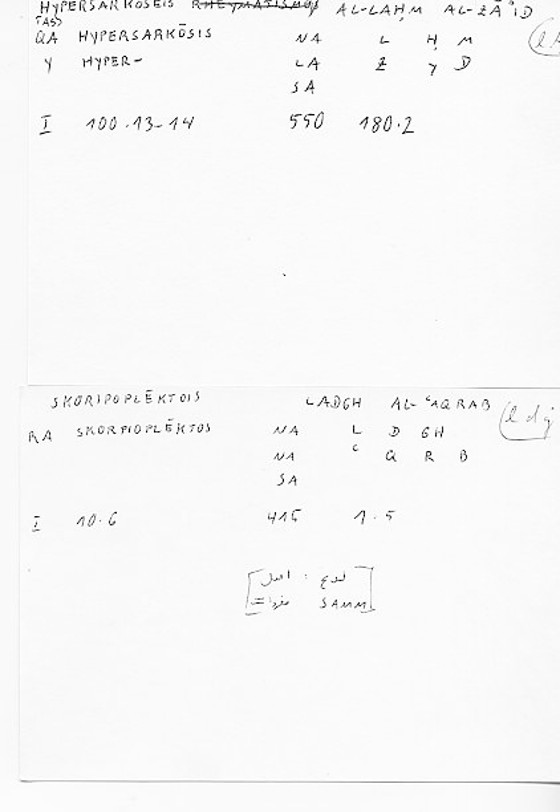 HYPERSARKŌSEIS RHEYMATISMOS AL-LAḤM AL-ZĀʾID
(ASS)
QA HYPERSARKŌSIS NA L Ḥ M
Y HYPER- LA Z Y D
SA
I 100.13-14 550 180.2
SKORIPOPLĒKTOIS LADGH AL-ʿAQRAB
RA SKORPIOPLĒKTOS NA L D GH (l dġ
NA ʿ Q R B
SA
I 10.6 415 1.5
لدغ : اصل
SAMM